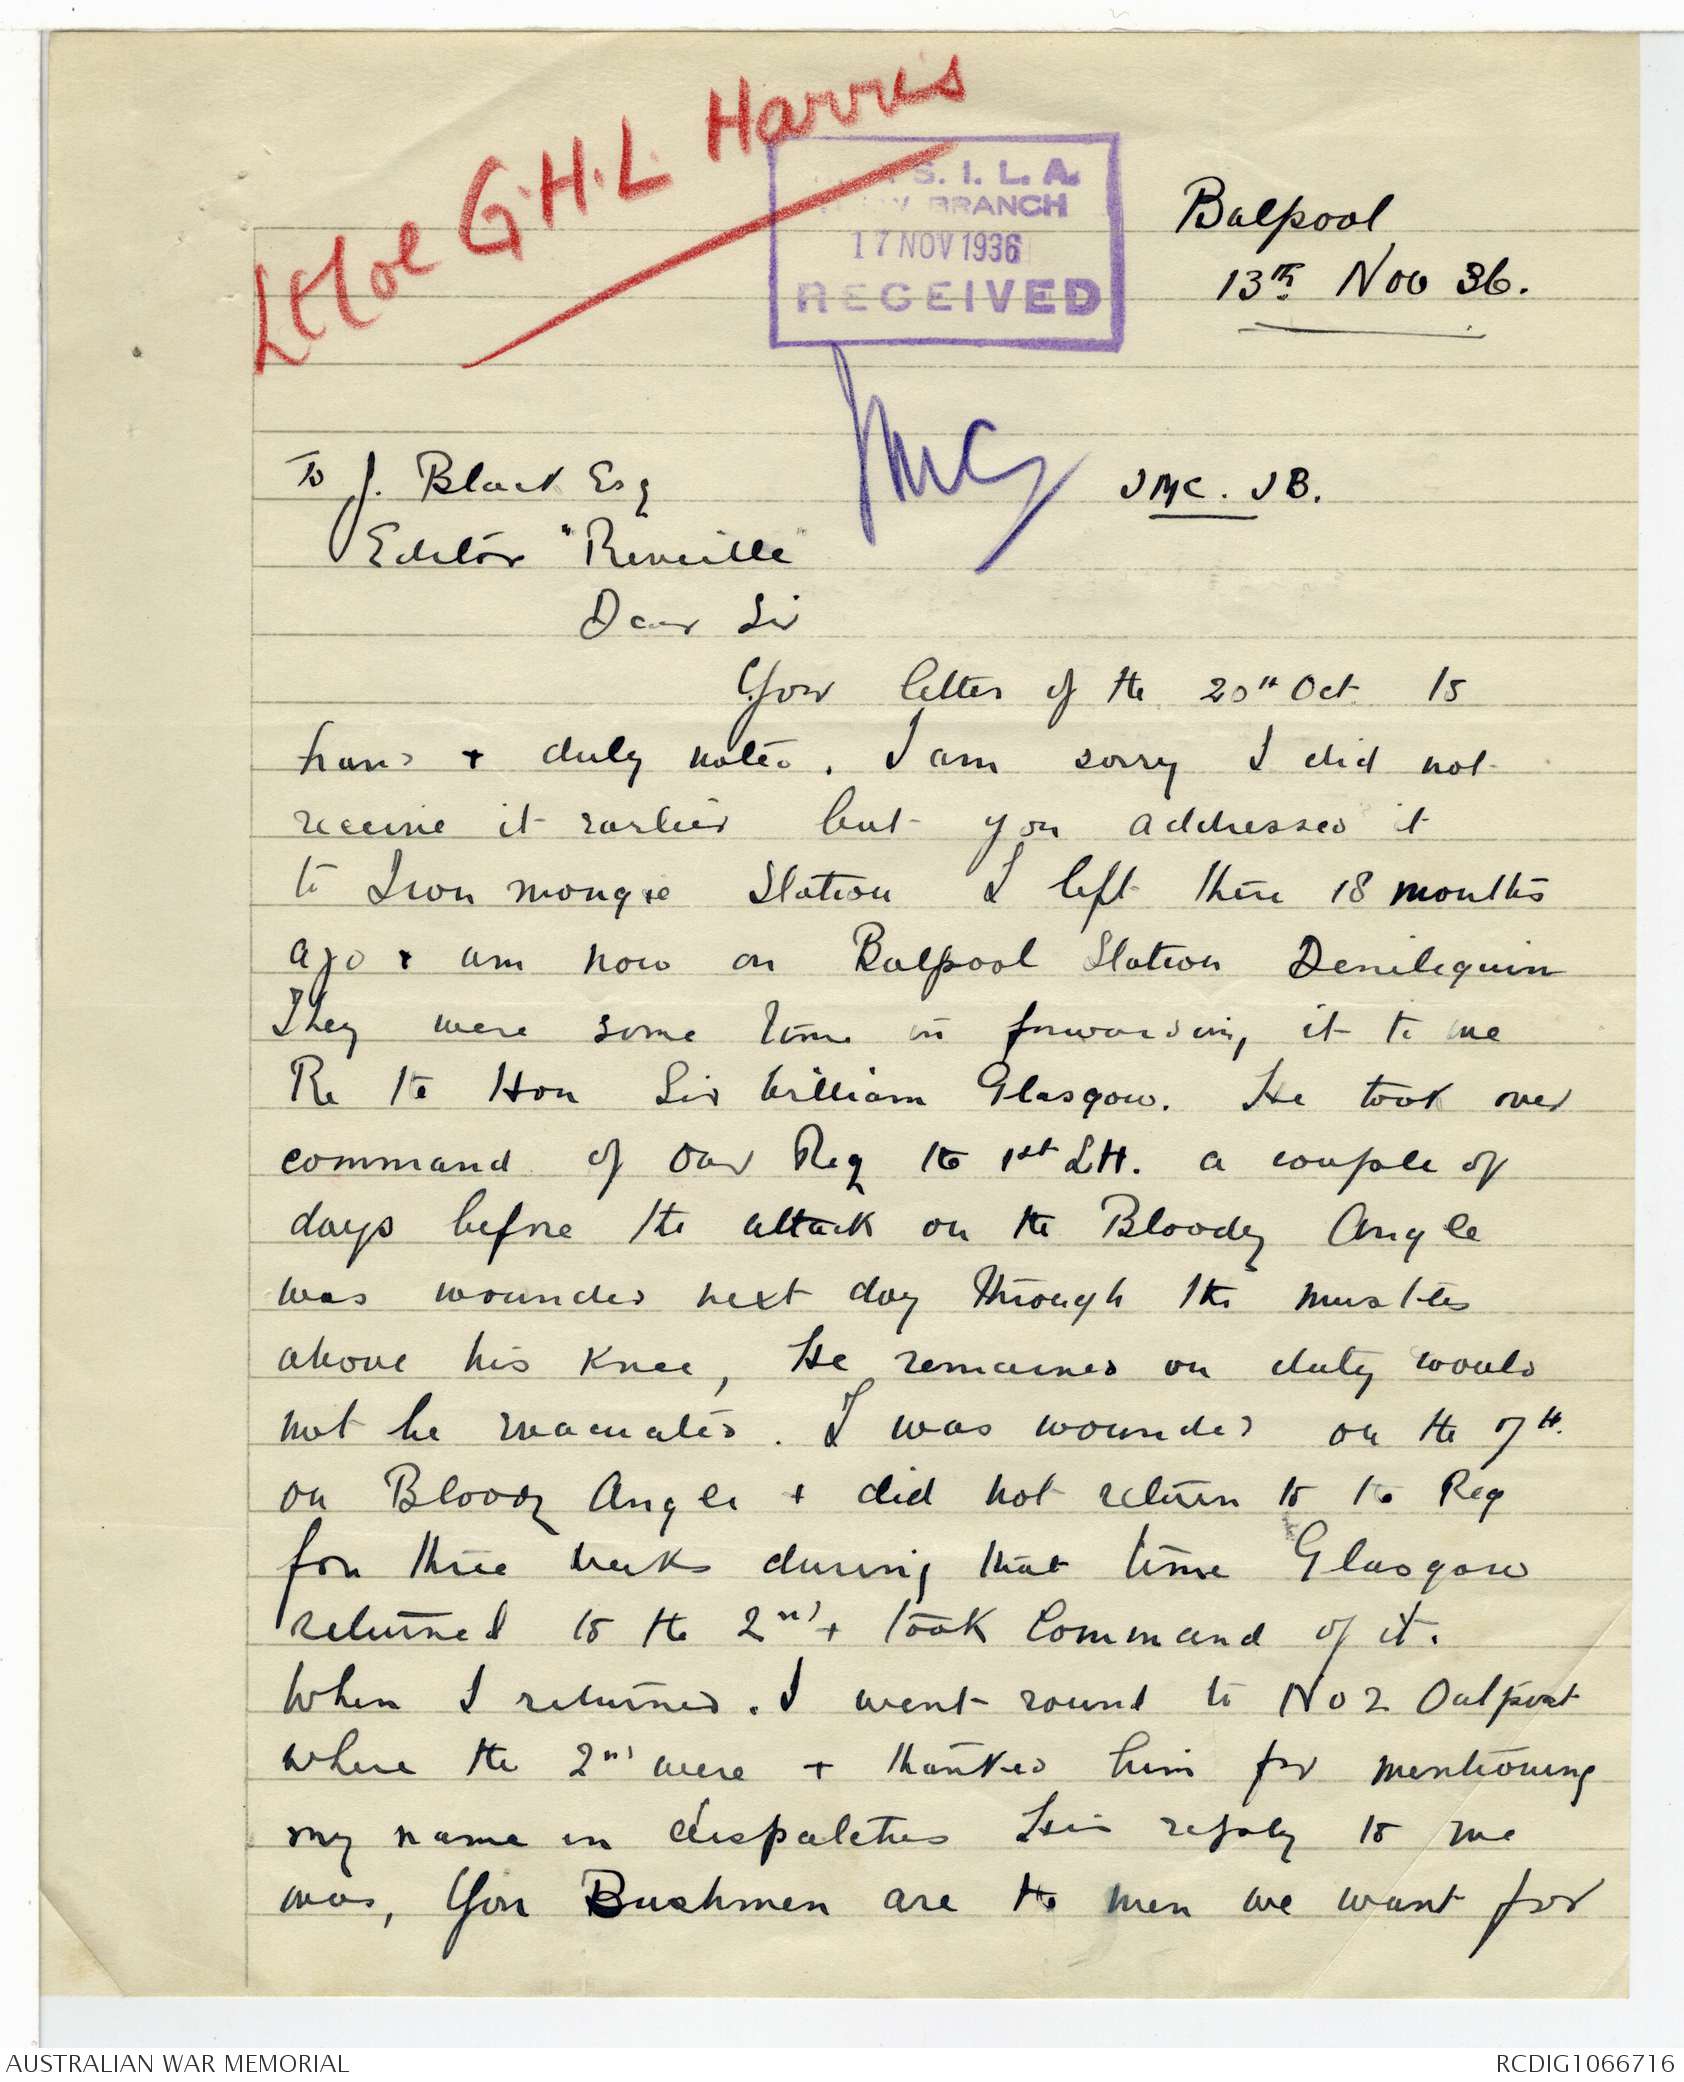 Lt Col G.H.L. Harris
S. I. L. A.
BRANCH
17 NOV 1936
RECEIVED
Balpool
13th Nov 36.
JMC. JB.
To J. Black Esq
Editor "Reveille"
Dear Sir
Your letter of the 20th Oct to
hand + duly noted. I am sorry I did not
receive it earlier but you addressed it
to Iron mongie Station I left there 18 months
ago + am now on Balpool Station Deniliquin
They were some time in forwarding it to me
Re the Hon Sir William Glasgow. He took over
command of our Reg the 1st LH. a couple of
days before the attack on the Bloody Angle
was wounded next day through the muscles
above his knee, He remained on duty would
not be evacuated. I was wounded on the 7th.
on Bloody Angle + did not return to the Reg
for three weeks during that time Glasgow
returned to the 2nd + took Command of it.
When I returned. I went round to No 2 Outpost
where the 2nd were + thanked him for mentioning
my name in dispatches His reply to me
was, You Bushmen are the men we want for
AUSTRALIAN WAR MEMORIAL
RCDIG1066716